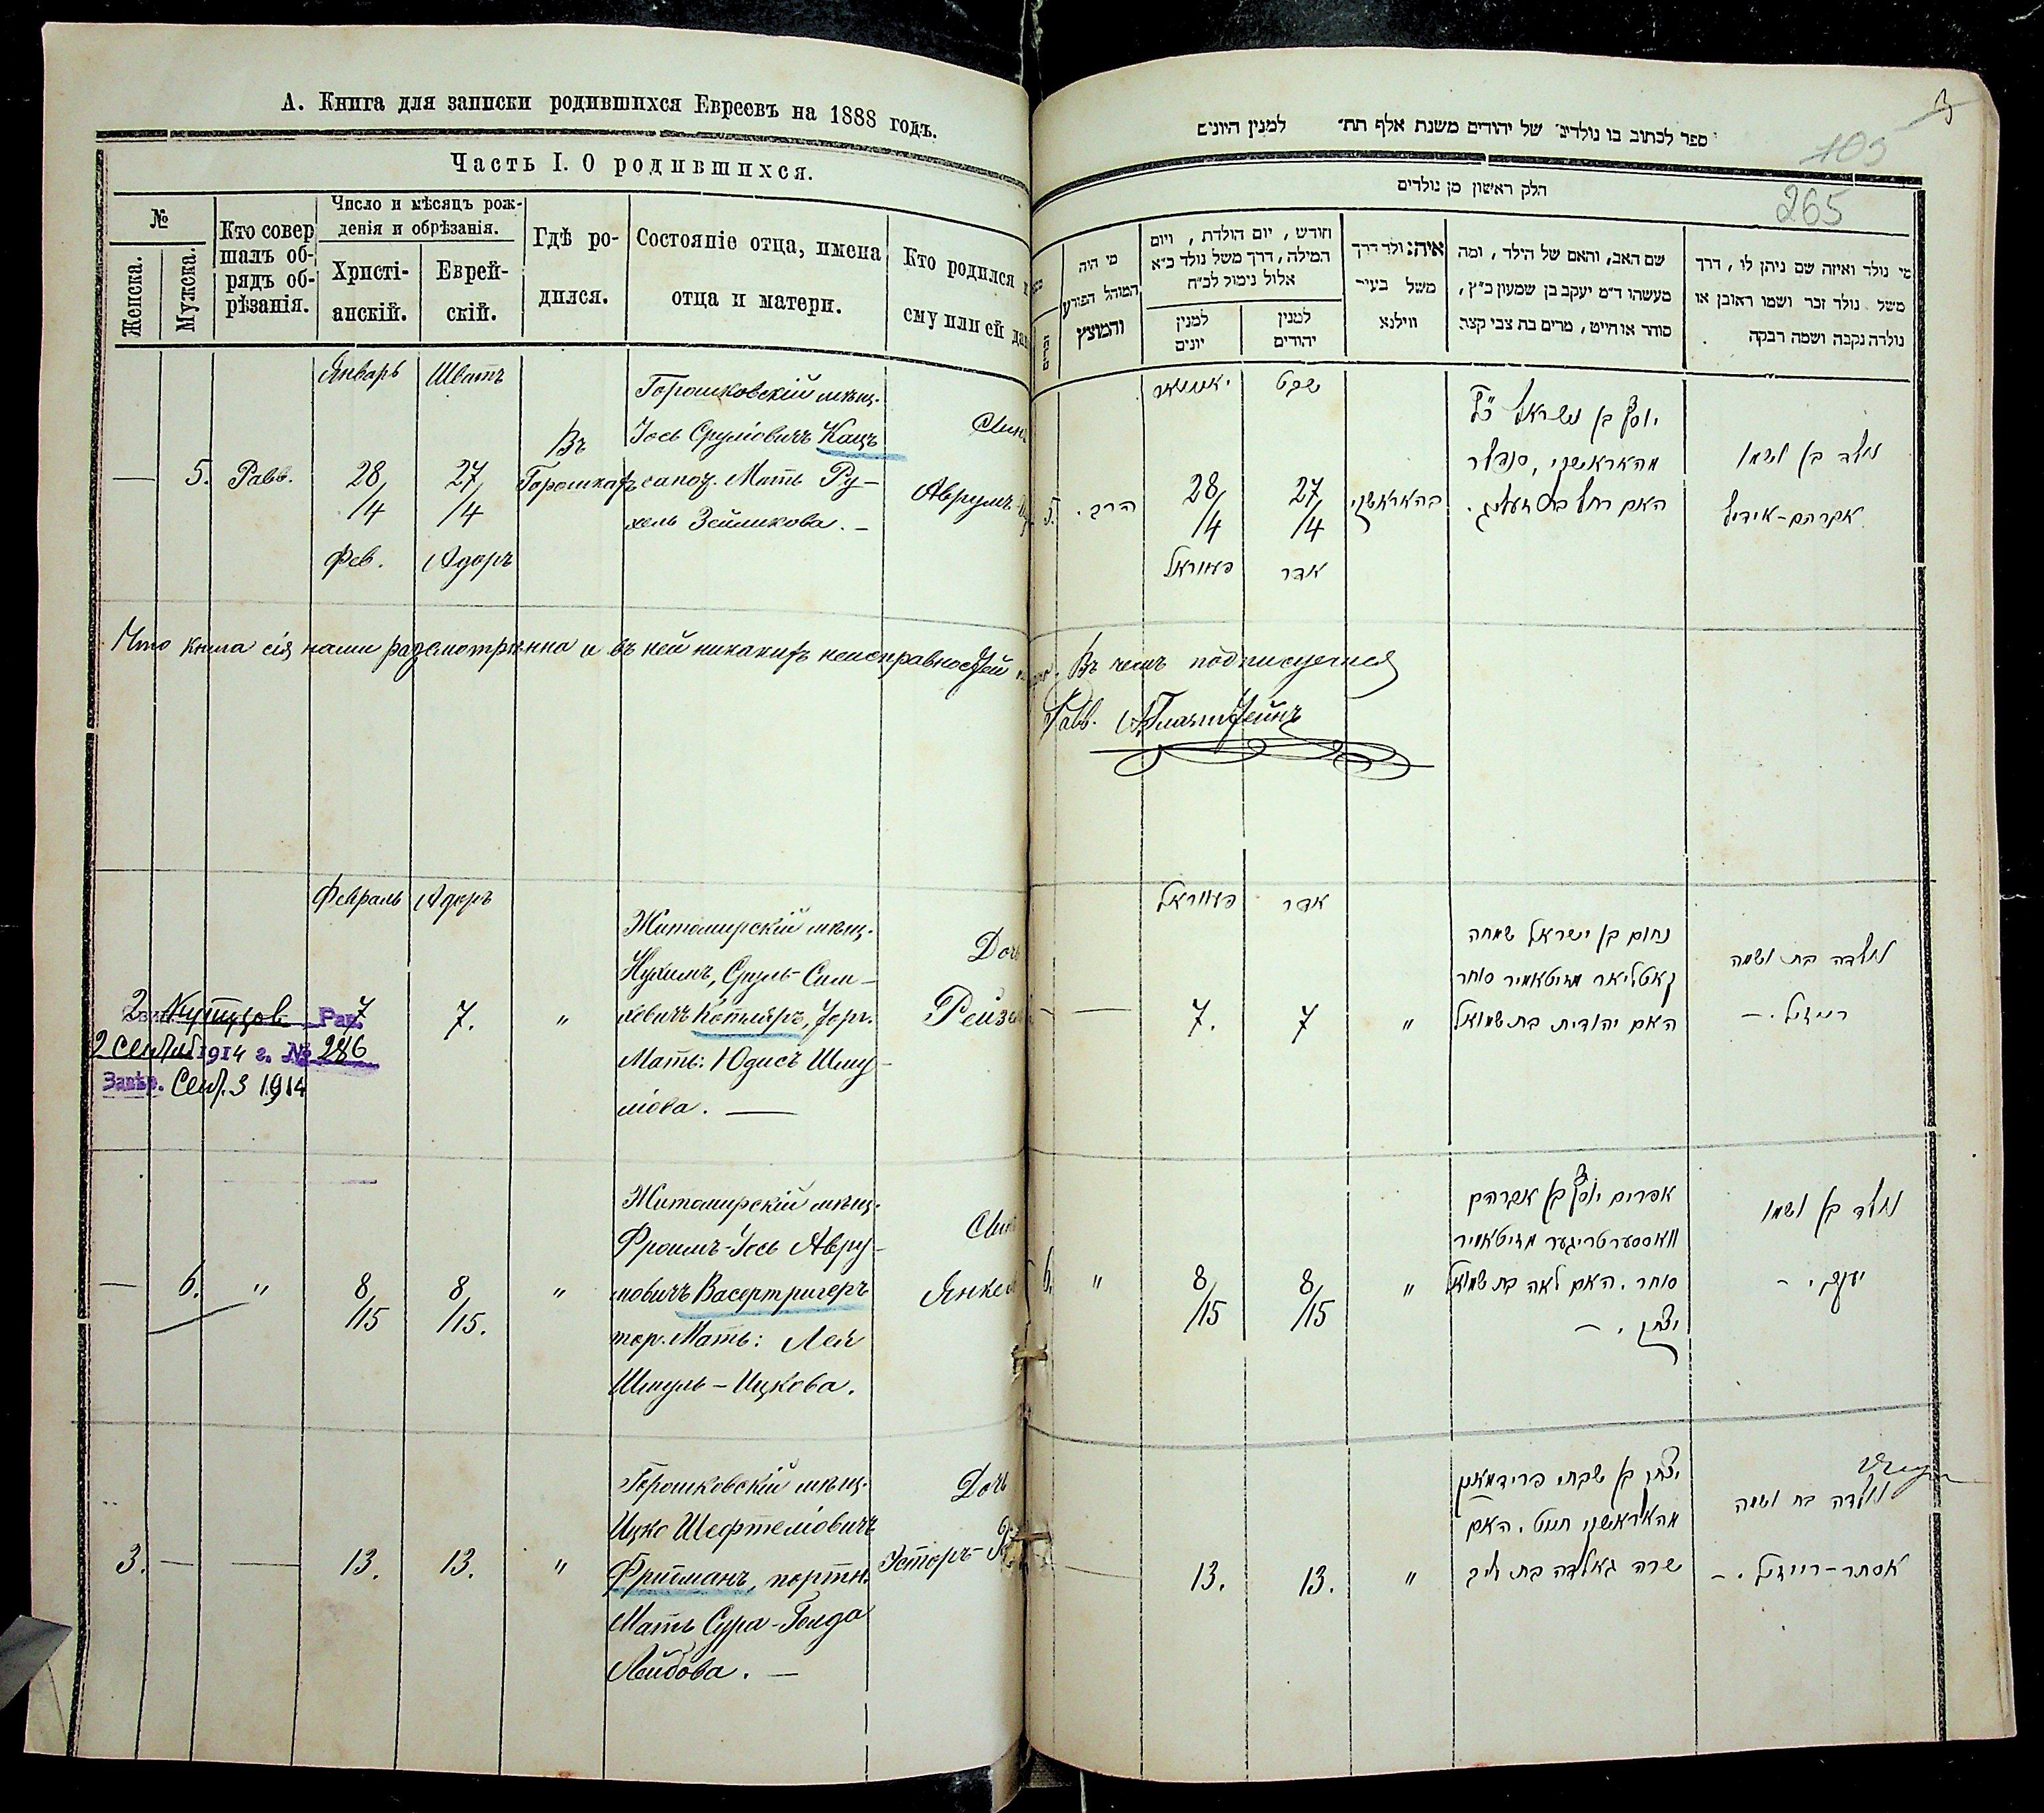 А. Книга для записки родившихся Евреевъ на 1888 годъ.
Часть I. О родившихся.
№
Женска.
Мужска.
Кто совер
шалъ об-
рядъ об-
рѣзанія.
Число и мѣсяцъ рож-
денія и обрѣзанія.
Христі-
анскій.
Еврей-
скій.
Гдѣ ро-
дился.
Состояніе отца, имена
отца и матери.
Кто родился
ему или ей
Январь Шватъ
Горошковскій мѣщ.
Іось Сруліовичъ Кацъ
сапож. Мать Ру-
хель Зейликова. –
— 5. Равв. 28/4 27/4
Въ
Горошкахъ
Сынъ
Аврумъ
Фев. Адаръ
Что книга сія нами разсмотрѣнна и въ ней никакихъ неисправностей
Въ чемъ подписуемся
Равв.
Февраль Адаръ
Житомирскій мѣщ.
Нухимъ, Сруль-Сим-
ховичъ Котляръ, торг.
Мать: Юдисъ Шму-
ліова. —
2 7 7. "
Дочь
Рейзель
2 Сентяб 1914 г. № 286
Сент. 3 1914
Житомирскій мѣщ.
Фроимъ-Іось Авру-
мовичъ Васертригеръ
тор. Мать: Лея
Шмуль-Ицкова.
— 6. " 8/15 8/15. "
Сынъ
Янкель
Горошковскій мѣщ.
Ицко Шефтеліовичъ
Фридманъ, портн.
Мать Сура-Голда
Лейбова. —
3. — — 13. 13. "
Дочь
Эстеръ-
3
105
265
ספר לכתוב בו נולדים של יהודים משנת אלף תת׳ למנין היונים
חלק ראשון מן נולדים
מי היה
המוהל הפורע
והמוצץ
חודש, יום הולדת, ויום
המילה, דרך משל נולד כ״א
אלול נימול לכ״ח
למנין
יונים
למנין
יהודים
איה נולד דרך
משל בעיר
ווילנא
שם האב, והאם של הילד, ומה
מעשהו ד״מ יעקב בן שמעון כ״ץ,
סוחר או חייט, מרים בת צבי קצב
מי נולד ואיזה שם ניתן לו, דרך
משל נולד זכר ושמו ראובן או
נולדה נקבה ושמה רבקה
יאנואר שבט
יוסף בן ישראל כ״ץ
מהאראשקי, סנדלר
האם רחל בת זעליג.
נולד בן ושמו
אברהם-אידיל
5. הרב. 28/4 27/4 בהאראשקי
פעווראל אדר
פעווראל אדר
נחום בן ישראל שמחה
קאטליאר מזיטאמיר סוחר
האם יהודית בת שמואל
נולדה בת ושמה
רייזיל. –
— 7. 7 "
אפרים יוסף בן אברהם
וואססערטריגער מזיטאמיר
סוחר. האם לאה בת שמואל
יצחק. –
נולד בן ושמו
יעקב. –
6. " 8/15 8/15 "
יצחק בן שבתי פרידמאן
מהאראשקי חייט. האם
שרה גאלדה בת ליב
נולדה בת ושמה
אסתר-רייזיל. –
— 13. 13. "